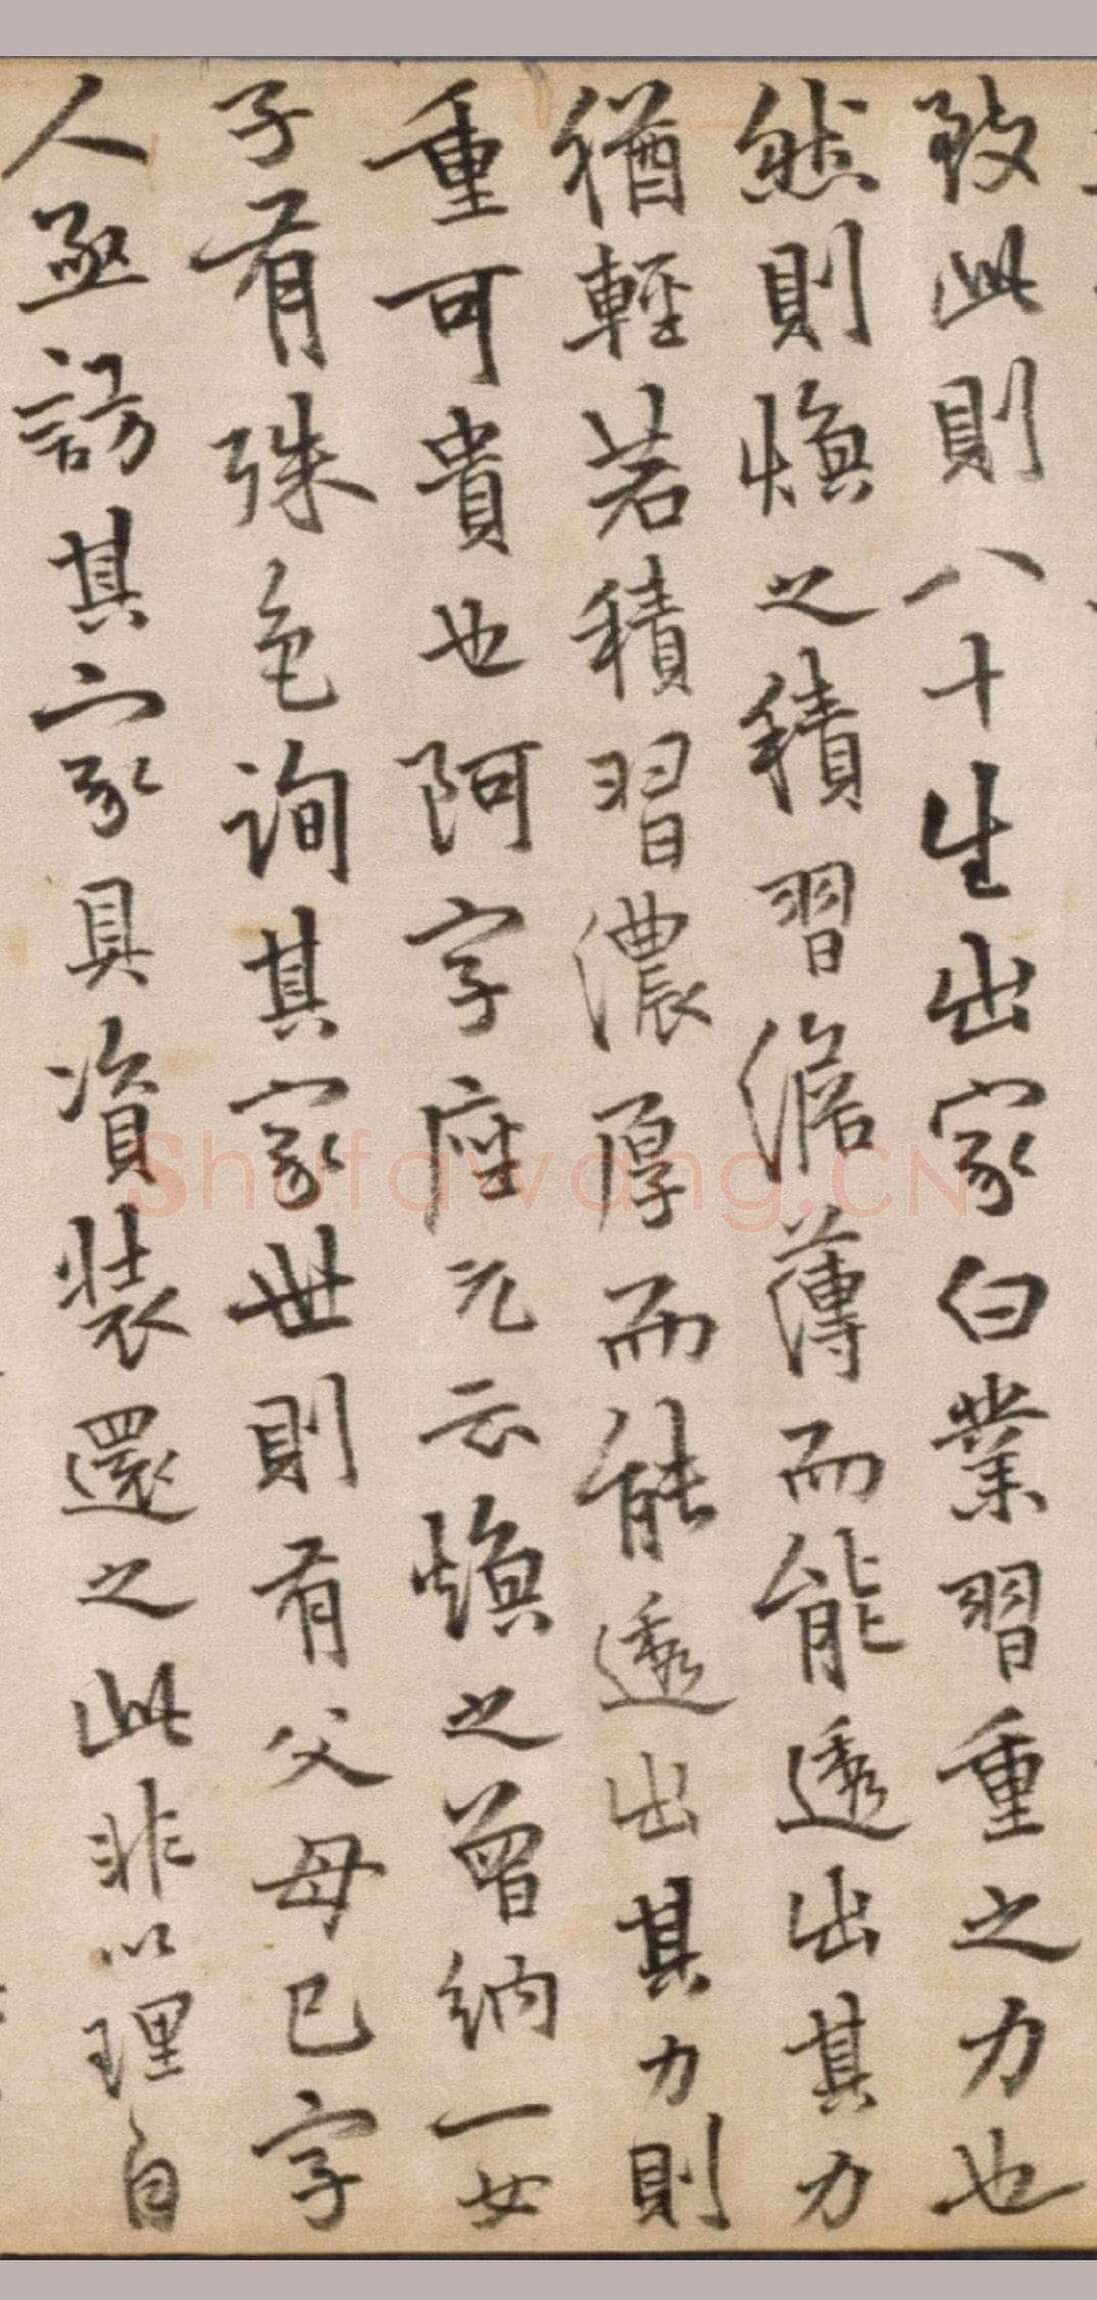 致此則八十生出家白業習重之力也
然則煥之積習澹薄而能透出其力
猶輕若積習濃厚而能透出其力則
重可貴也阿字座元云煥之曾納一女
子有殊色詢其家世則有父母已字
人亟訪其家具資裝還之此非以理自
Shufawang.CN